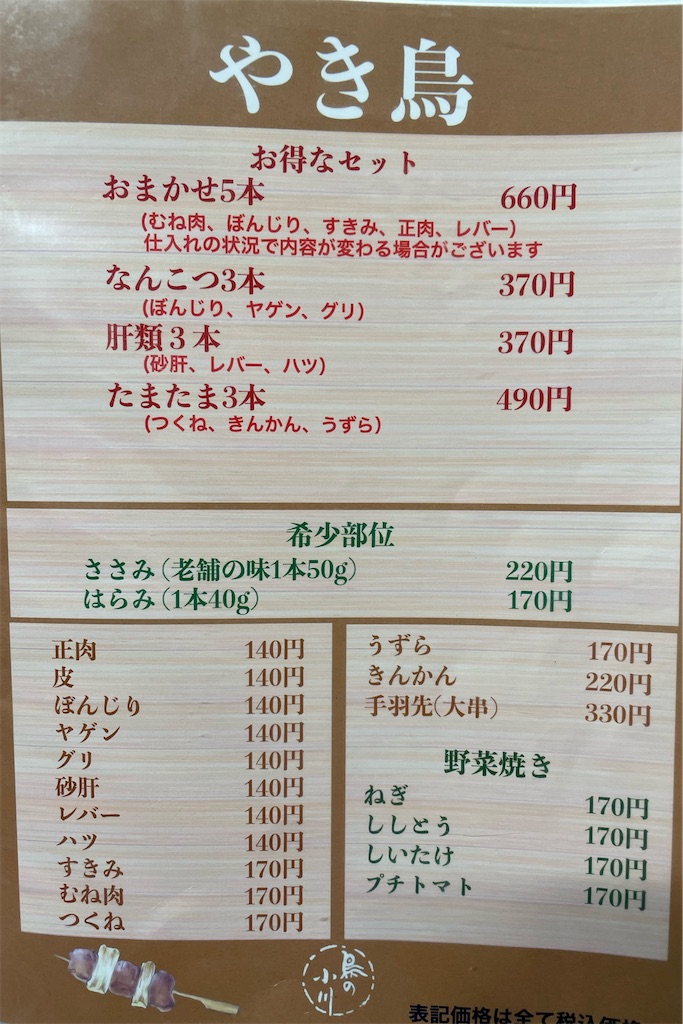 やき鳥
お得なセット
おまかせ5本 660円
(むね肉、ぼんじり、すきみ、正肉、レバー)
仕入れの状況で内容が変わる場合がございます
なんこつ3本 370円
(ぼんじり、ヤゲン、グリ)
肝類3本 370円
(砂肝、レバー、ハツ)
たまたま3本 490円
(つくね、きんかん、うずら)
希少部位
ささみ(老舗の味1本50g) 220円
はらみ(1本40g) 170円
正肉 140円
皮 140円
ぼんじり 140円
ヤゲン 140円
グリ 140円
砂肝 140円
レバー 140円
ハツ 140円
すきみ 170円
むね肉 170円
つくね 170円
うずら 170円
きんかん 220円
手羽先(大串) 330円
野菜焼き
ねぎ 170円
ししとう 170円
しいたけ 170円
プチトマト 170円
鳥の
小川
表記価格は全て税込価格